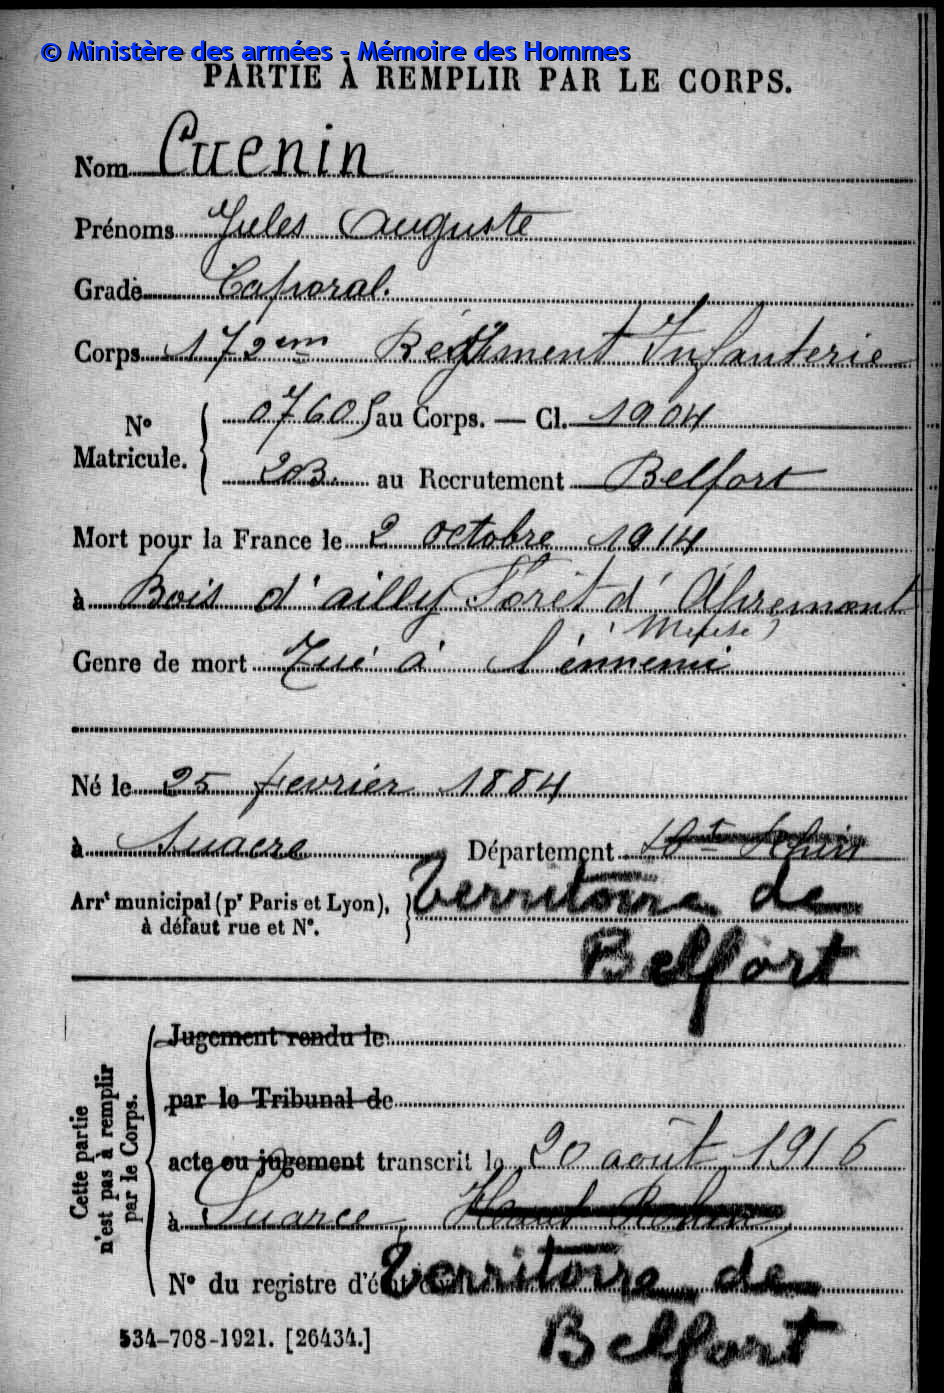 © Ministère des armées - Mémoire des Hommes
PARTIE À REMPLIR PAR LE CORPS.
Nom Cuenin
Prénoms Jules Auguste
Grade Caporal.
Corps 172em Régiment Infanterie
N° Matricule. 07605 au Corps. — Cl. 1904
203. au Recrutement Belfort
Mort pour la France le 2 octobre 1914
à Bois d'ailly Forêt d' Apremont
(Meuse)
Genre de mort Tué à l'énnemi
Né le 25 fevrier 1884
à Suacre Département Ht Rhin
Arrt municipal (pr Paris et Lyon), à défaut rue et N°. Territoire de
Belfort
Cette partie n'est pas à remplir par le Corps.
Jugement rendu le
par le Tribunal de
acte ou jugement transcrit le 20 août 1916
à Suarce, Haut Rhin,
N° du registre d'état civil Territoire de
Belfort
534-708-1921. [26434.]